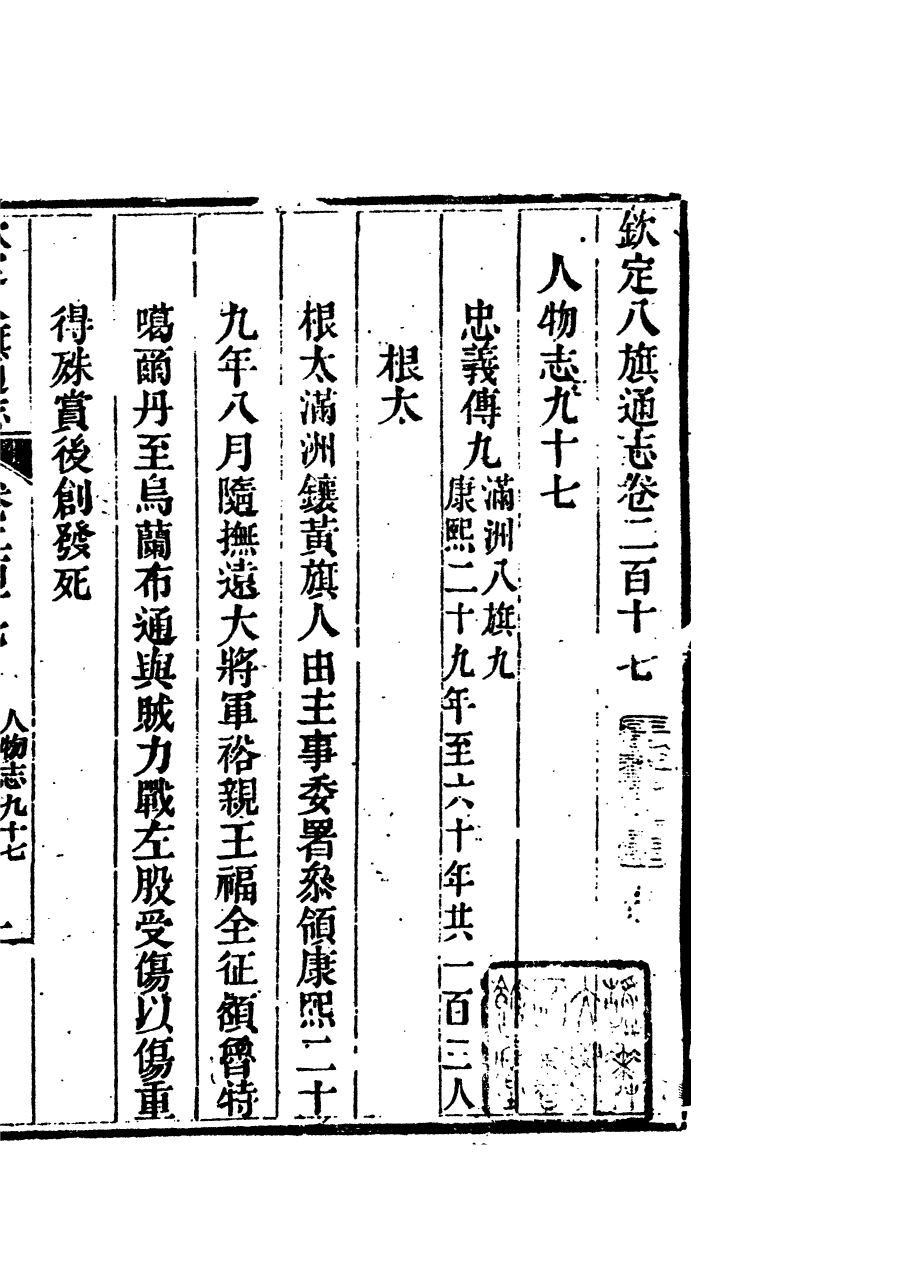 欽定八旗通志卷二百十七
人物志九十七
忠義傳九
滿洲八旗九
康熙二十九年至六十年共一百三人
根太
根太滿洲鑲黃旗人由主事委署叅領康熙二十
九年八月隨撫遠大將軍裕親王福全征額魯特
噶爾丹至烏蘭布通與賊力戰左股受傷以傷重
得殊賞後創發死
人物志九十七